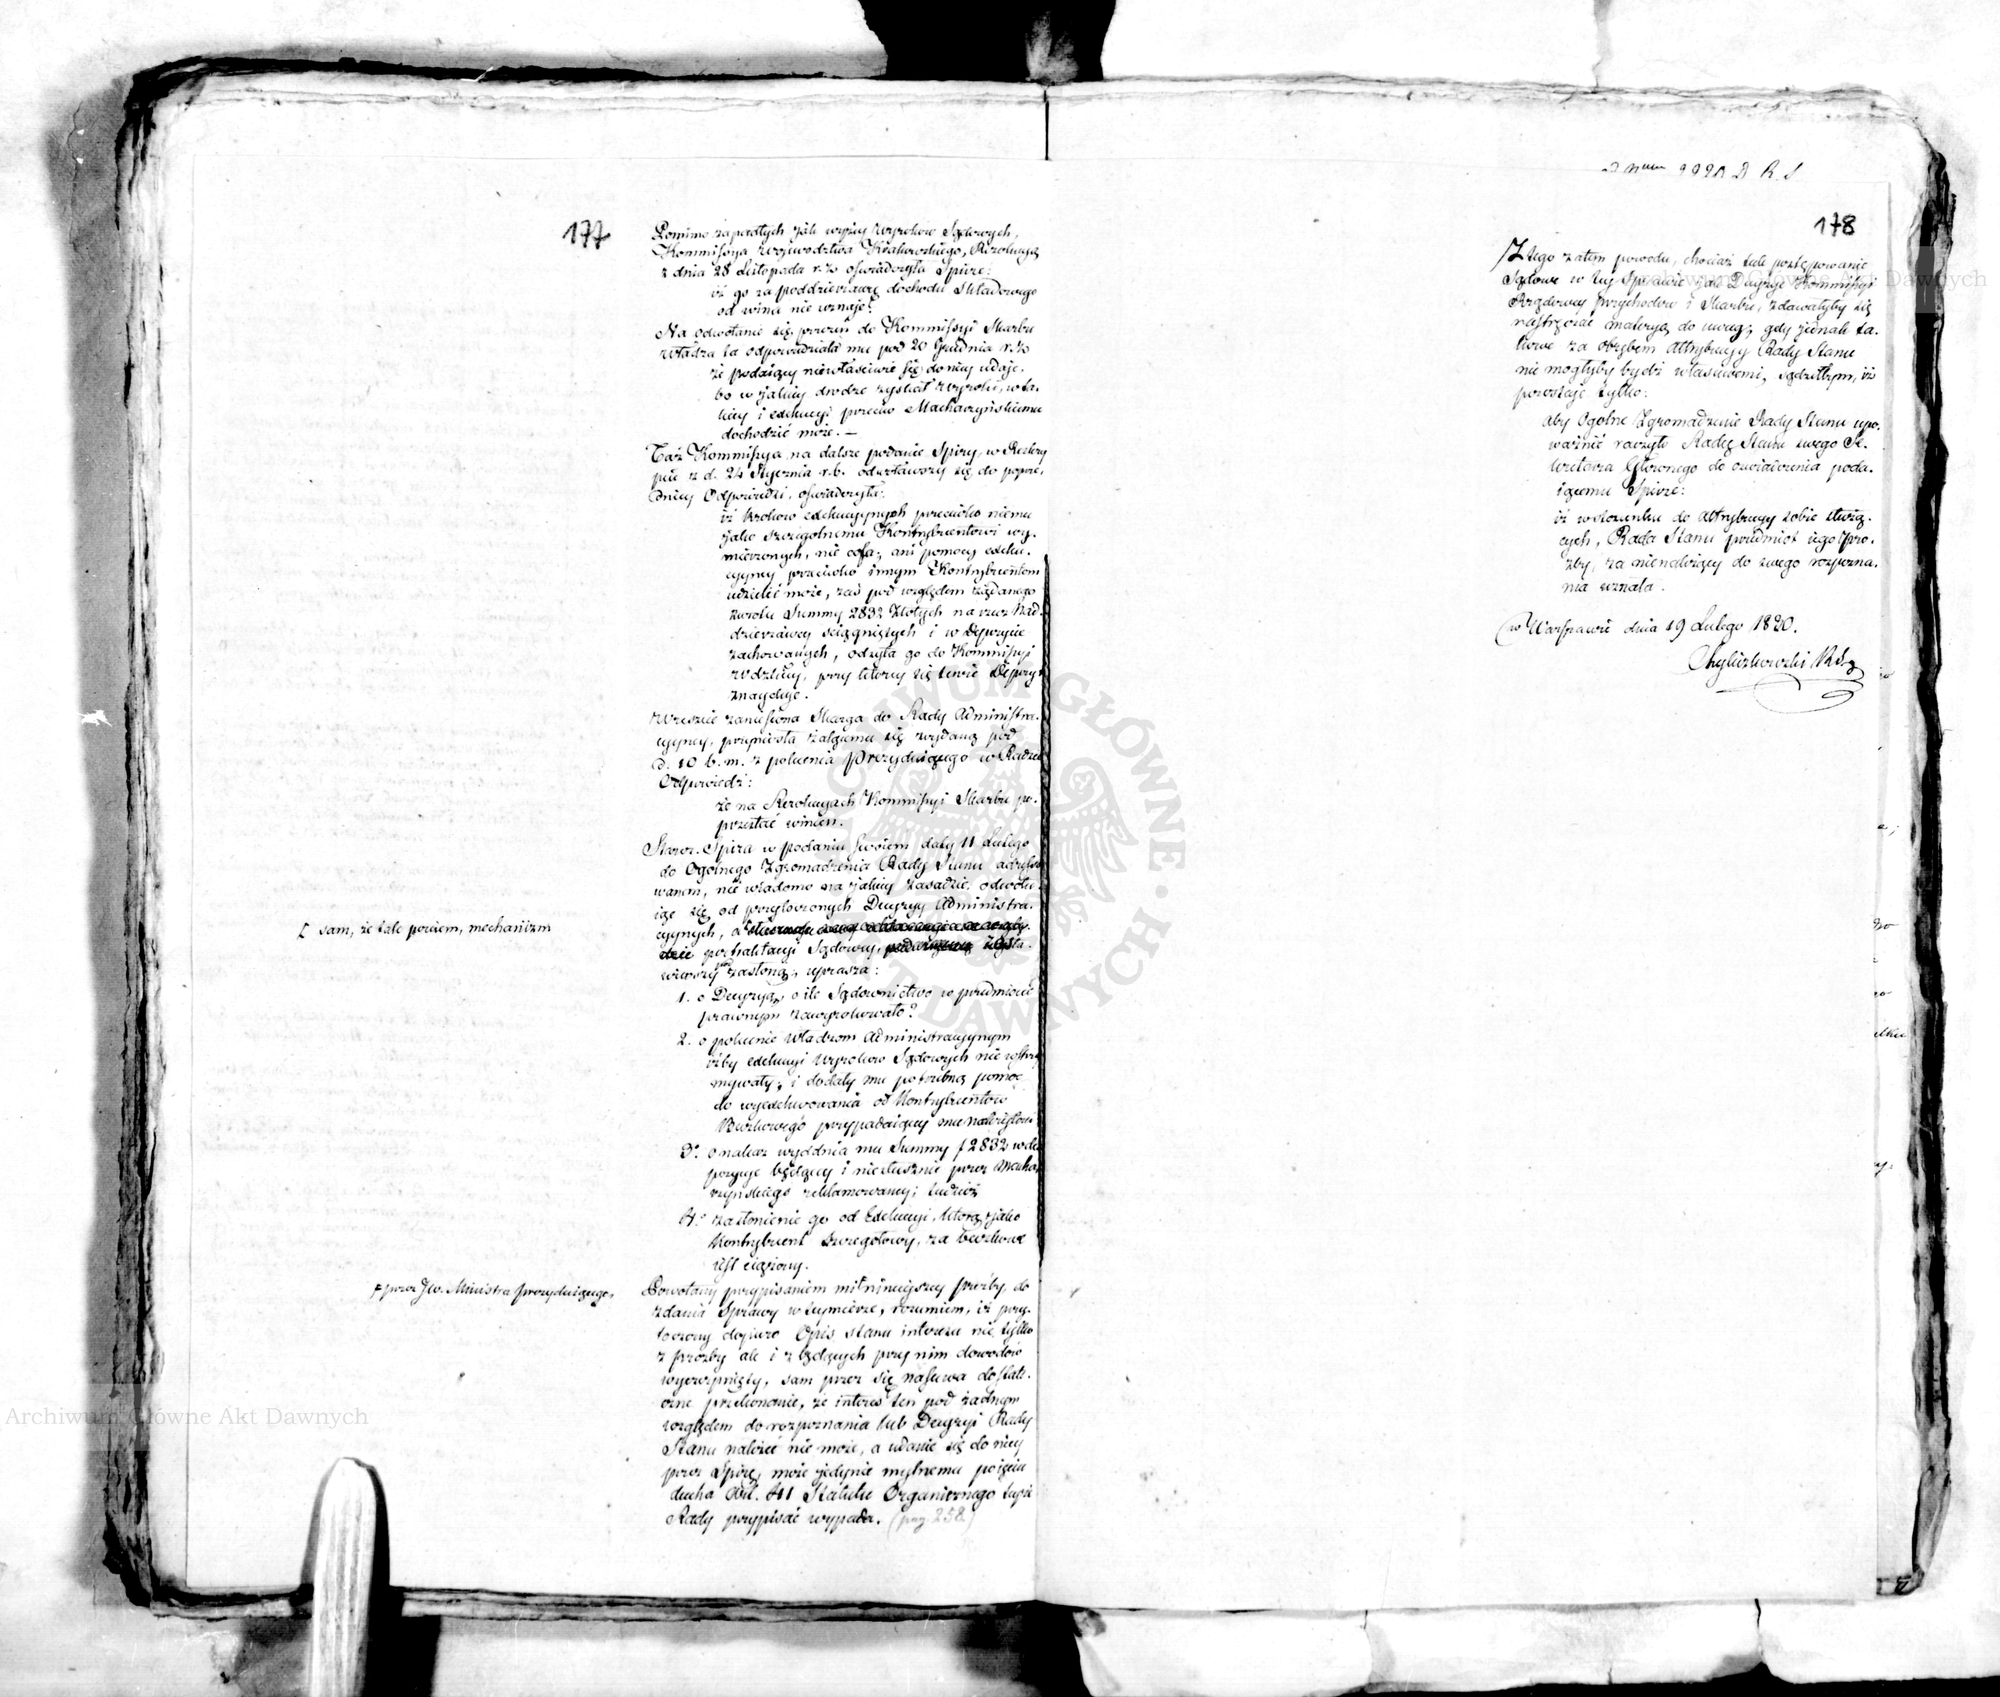 177
Pomimo zapadłych jak wyżey Wyrokow Sądowych,
Kommissya Woiewodztwa Krakowskiego, Rezolucyą
z dnia 28 Listopada r. z. oswiadczyła Spirze:
iż go za poddzierzawcę dochodu Składowego
od wina nie uznaje.
Na odwołanie się przeciw do Kommissyi Skarbu
Władza ta odpowiedziała mu pod 20 Grudnia r. z.
że podaiący niewłaściwie się do niey udaje,
bo w jakiey drodze zyskał Wyroki, w ta-
kiey i exekucyi przeciw Machaczyńskiemu
dochodzić może. —
Taż Kommissya na dalsze podanie Spiry, w Reskry
pcie z d. 24 Stycznia r. b. odezwawszy się do poprze-
dniey Odpowiedzi, oświadczyła:
iż krokow exekucyinych przeciwko niemu
jako szczegolnemu Kontrybuentowi wy-
mierzonych, nie cofa; ani pomocy exeku-
cyiney przeciwko innym Kontrybuentom
udzielić może, zaś pod względem żądanego
zwrotu Summy 2832 Złotych na rzecz Nad-
dzierzawcy sciągniętych i w Depozycie
zachowanych, odsyła go do Kommissyi
Wodzkiey, przy ktorey się tenże Depozyt
znayduje.
Wreszcie zaniesiona Skarga do Rady Administra-
cyiney, przyniosła żalącemu się wydaną pod
d. 10 b. m. z polecenia Prezyduiącego w Radzie
Odpowiedź:
że na Rezolucyach Kommissyi Skarbu po-
przestać winien.
Staroz. Spira w podaniu swoiem daty 11 Lutego
do Ogolnego Zgromadzenia Rady Stanu adresso-
wanem, nie wiadomo na jakiey zasadzie odwołu-
iąc się od przytoczonych Decyzyy Administra-
cyinych, a
pertraktacyi Sądowey,
zasłoną; uprasza:
[ sam, że tak powiem, mechanizm
1. o Decyzyą, o ile Sądownictwo w przedmiocie
prawnym zawyrokowało?
2. o polecenie Władzom Administracyinym
iżby exekucyi Wyrokow Sądowych nie wstrzy
mywały; i dodały mu potrzebną pomoc
do wyexekwowania od Kontrybuentow
Beczkowego przypadaiącey mu należytości
3. o nakaz wydania mu Summy f 2832 w de
pozycie będącey i niesłusznie przez Macha
czyńskiego reklamowaney; tudzież
4. zasłonienie go od Exekucyi, ktorą jako
Kontrybuent szczegołowy, za beczkowe
iest ciążony.
# przez JW. Ministra Prezyduiącego,
Powołany przypisaniem mi niniejszey proźby, do
zdania Sprawy w tey mierze, rozumiem, iż przy-
toczony dopiero Opis stanu interesu nie tylko
z proźby ale i z będących przy nim dowodow
wyczerpnięty, sam przez się nasuwa dostate-
czne przekonanie, że interes ten pod żadnym
względem do rozpoznania lub Decyzyi Rady
Stanu należeć nie może, a udanie się do niey
przez Spirę, może jedynie mylnemu poięciu
ducha Art. 41 Statutu Organicznego teyże
Rady przypisać wypada. (pag. 258)
178
Z tego zatem powodu, chociaż tak postępowanie
Sądowe w tey Sprawie jak Decyzye Kommissyi
Rządowey Przychodow i Skarbu, zdawałyby się
nastręczać materyą do uwag; gdy jednak ta-
kowe za obrębem Attrybucyy Rady Stanu
nie mogłyby bydź właściwemi, sądziłbym, iż
pozostaje tylko:
aby Ogolne Zgromadzenie Rady Stanu upo-
ważnić raczyło Radcę Stanu swego Se-
kretarza Głownego do oswiadczenia poda-
iącemu Spirze:
iż w stosunku do Attrybucyy sobie służą-
cych, Rada Stanu przedmiot iego Pro-
zby, za nienależący do swego rozpozna-
nia uznała.
w Warszawie dnia 19 Lutego 1820.
Archiwum Główne Akt Dawnych
Archiwum Główne Akt Dawnych
ARCHIWUM GŁÓWNE AKT DAWNYCH